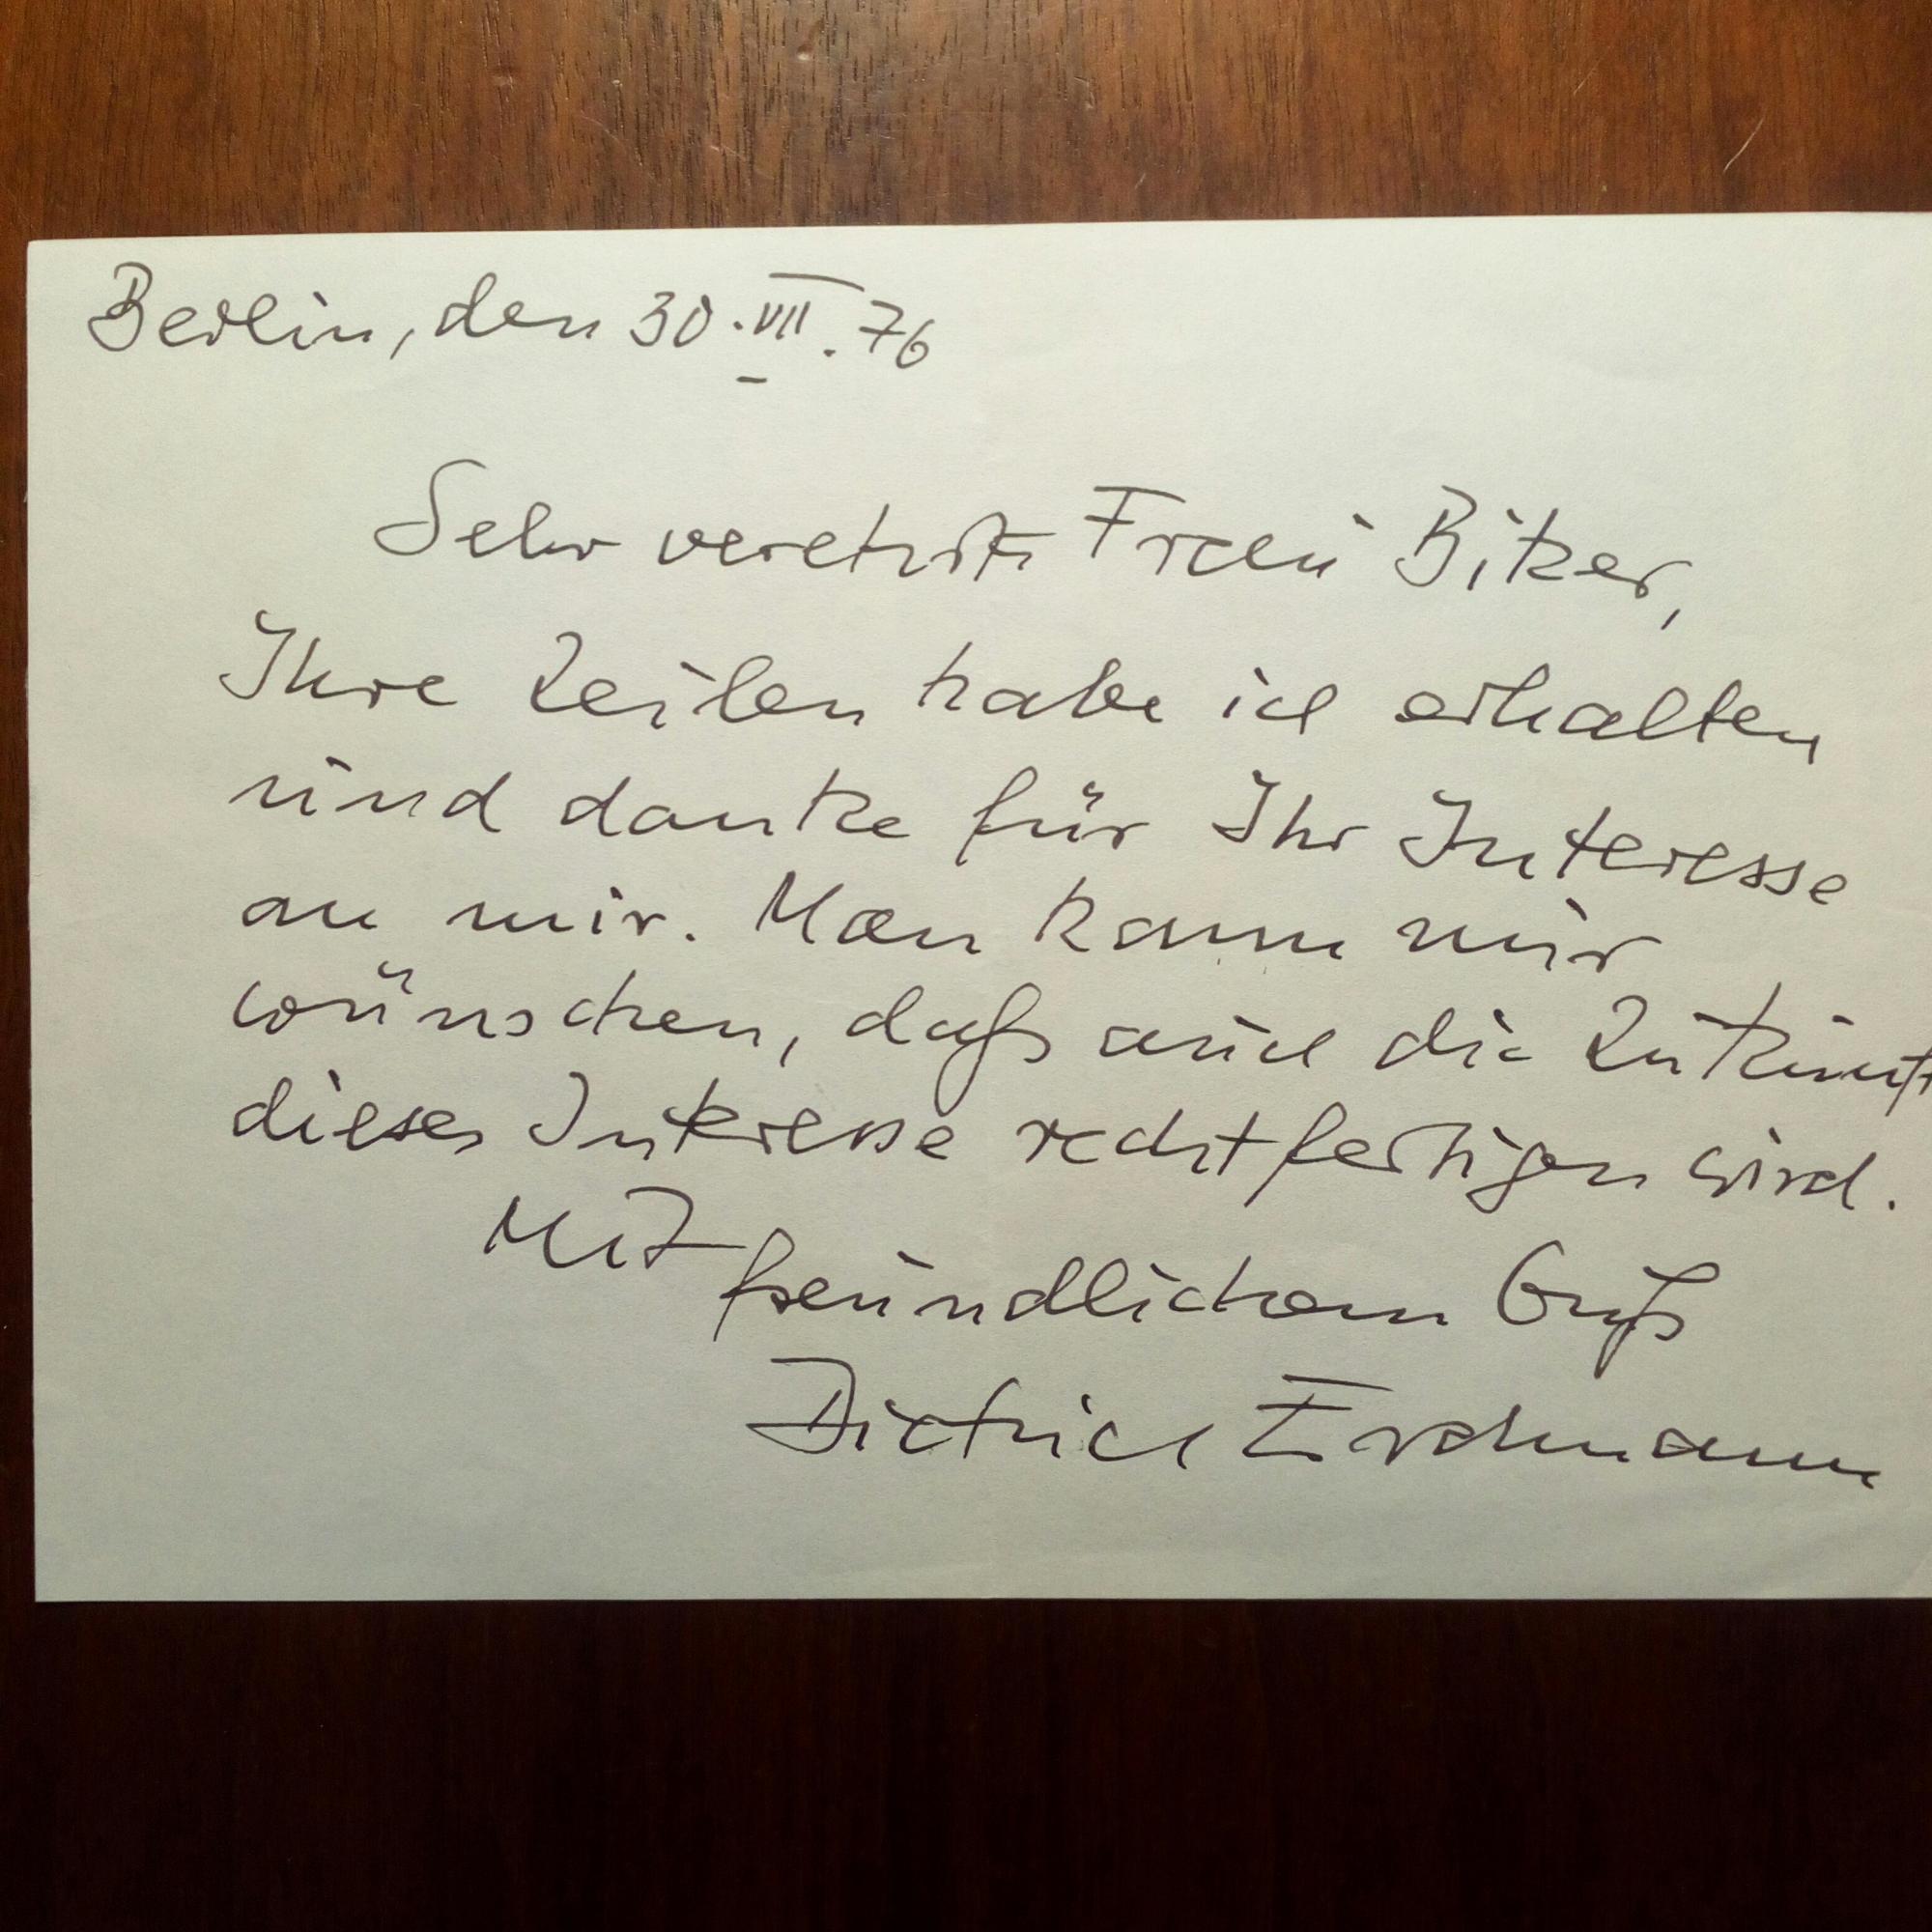 Berlin, den 30. VII. 76
Sehr verehrte Frau Bitzer,
Ihre Zeilen habe ich erhalten
und danke für Ihr Interesse
an mir. Man kann mir
wünschen, daß auch die Zukunft
dieses Interesse rechtfertigen wird.
Mit
freundlichem Gruß
Dietrich Erdmann